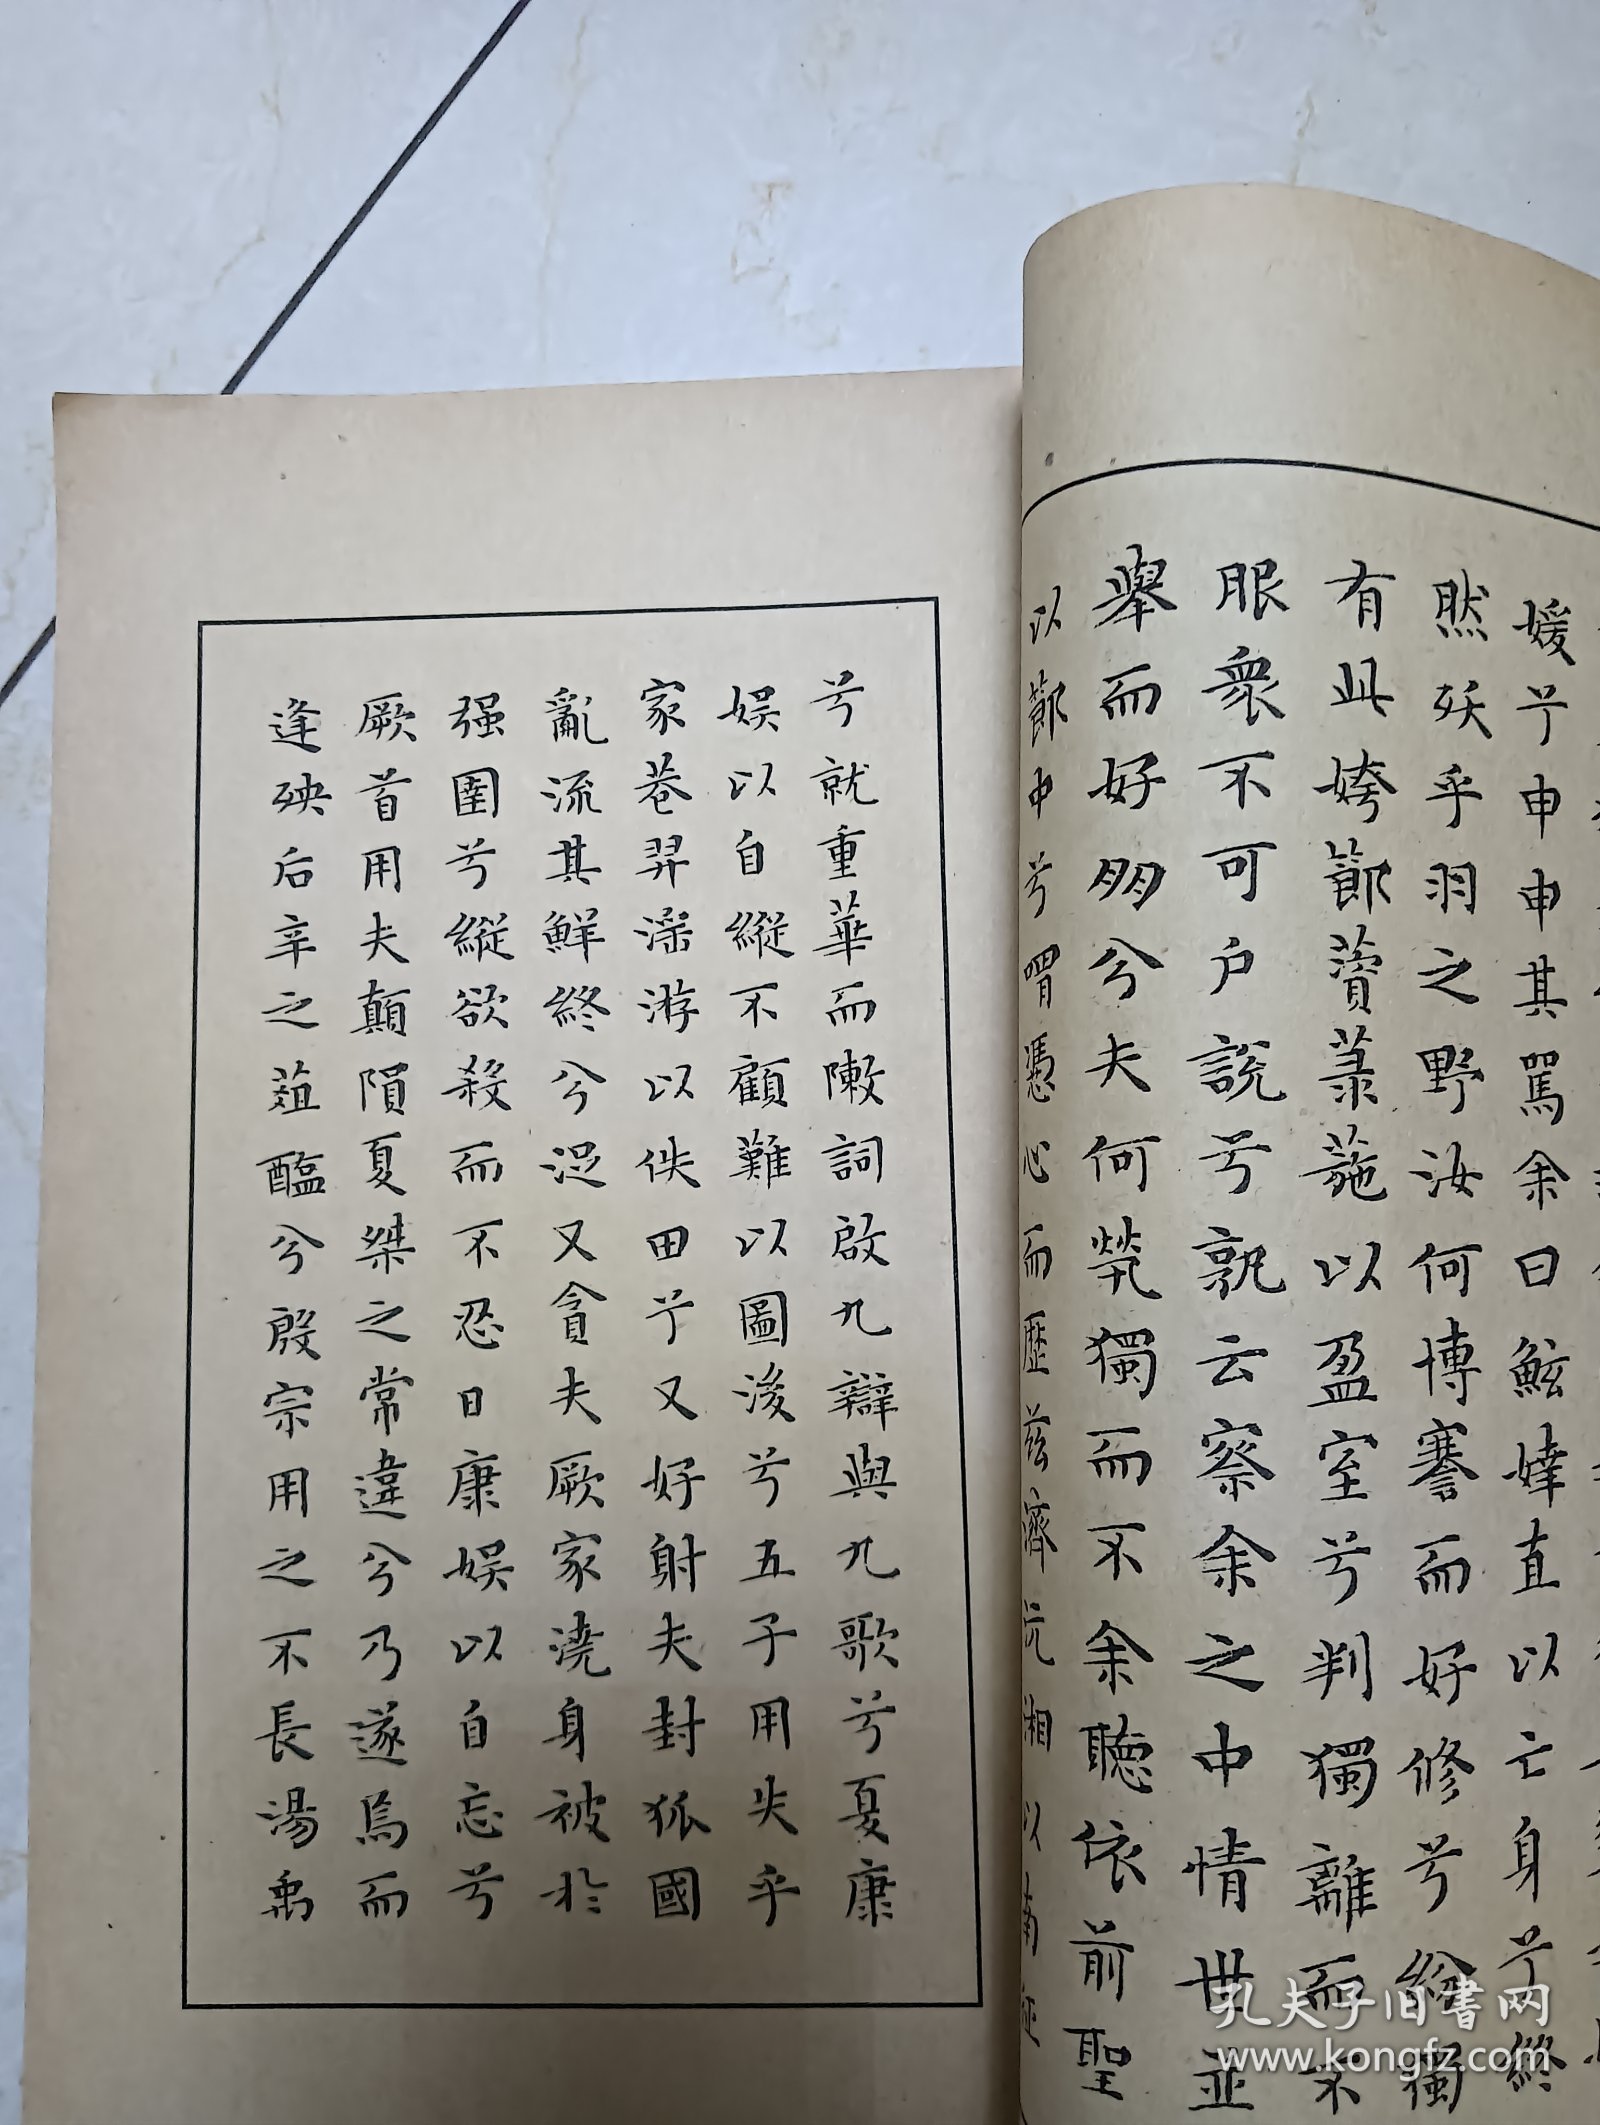 媛兮申申其罵余曰鮌婞直以亡身兮終
然殀乎羽之野汝何博謇而好修兮紛獨
有此姱節薋菉葹以盈室兮判獨離而不
服眾不可户說兮孰云察余之中情世並
舉而好朋兮夫何煢獨而不余聽依前聖
以節中兮喟憑心而歷茲濟沅湘以南征
兮就重華而敶詞啟九辯與九歌兮夏康
娱以自縱不顧難以圖後兮五子用失乎
家巷羿淫游以佚田兮又好射夫封狐國
亂流其鮮終兮浞又貪夫厥家澆身被於
强圉兮縱欲殺而不忍日康娱以自忘兮
厥首用夫顛隕夏桀之常違兮乃遂焉而
逢殃后辛之菹醢兮殷宗用之不長湯禹
孔夫子旧書网
www.kongfz.com